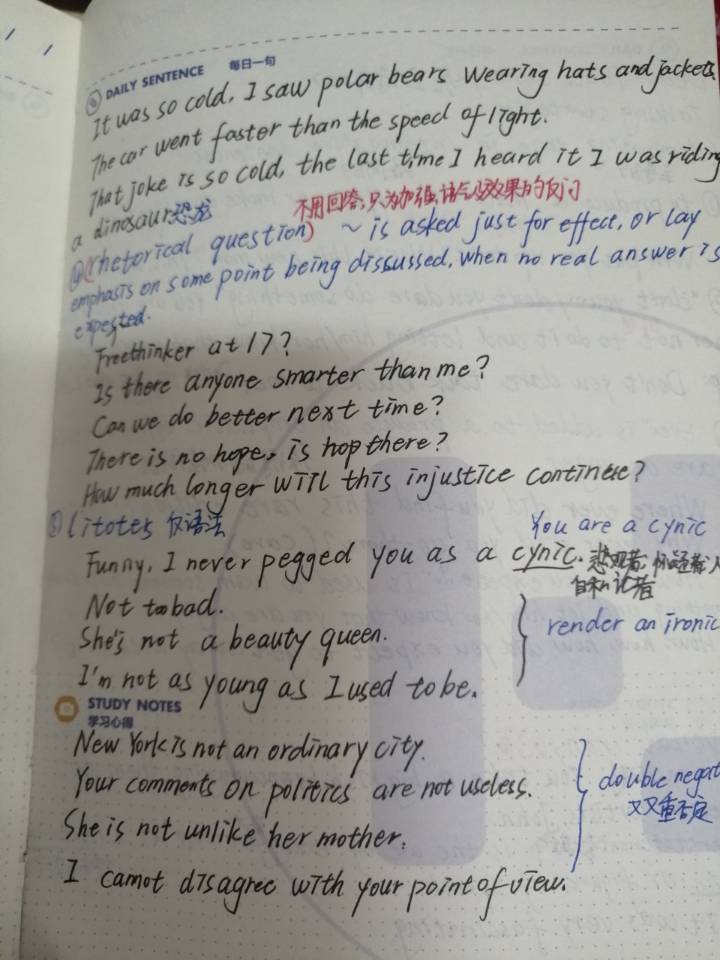 DAILY SENTENCE 每日一句
It was so cold, I saw polar bears wearing hats and jackets.
The car went faster than the speed of light.
That joke is so cold, the last time I heard it I was riding
a dinosaur恐龙
不用回答,只为加强语气及效果的反问
(rhetorical question) ~ is asked just for effect, or lay
emphasis on some point being discussed, when no real answer is
expected.
Freethinker at 17?
Is there anyone smarter than me?
Can we do better next time?
There is no hope, is hop there?
How much longer will this injustice continue?
Litotes 反语法
You are a cynic
Funny, I never pegged you as a cynic. 悲观者,怀疑者,人
自私论者
Not too bad.
She's not a beauty queen.
render an ironic
I'm not as young as I used to be.
STUDY NOTES
学习心得
New York is not an ordinary city.
Your comments on politics are not useless.
double negat
双重否定
She is not unlike her mother.
I camot disagree with your point of view.